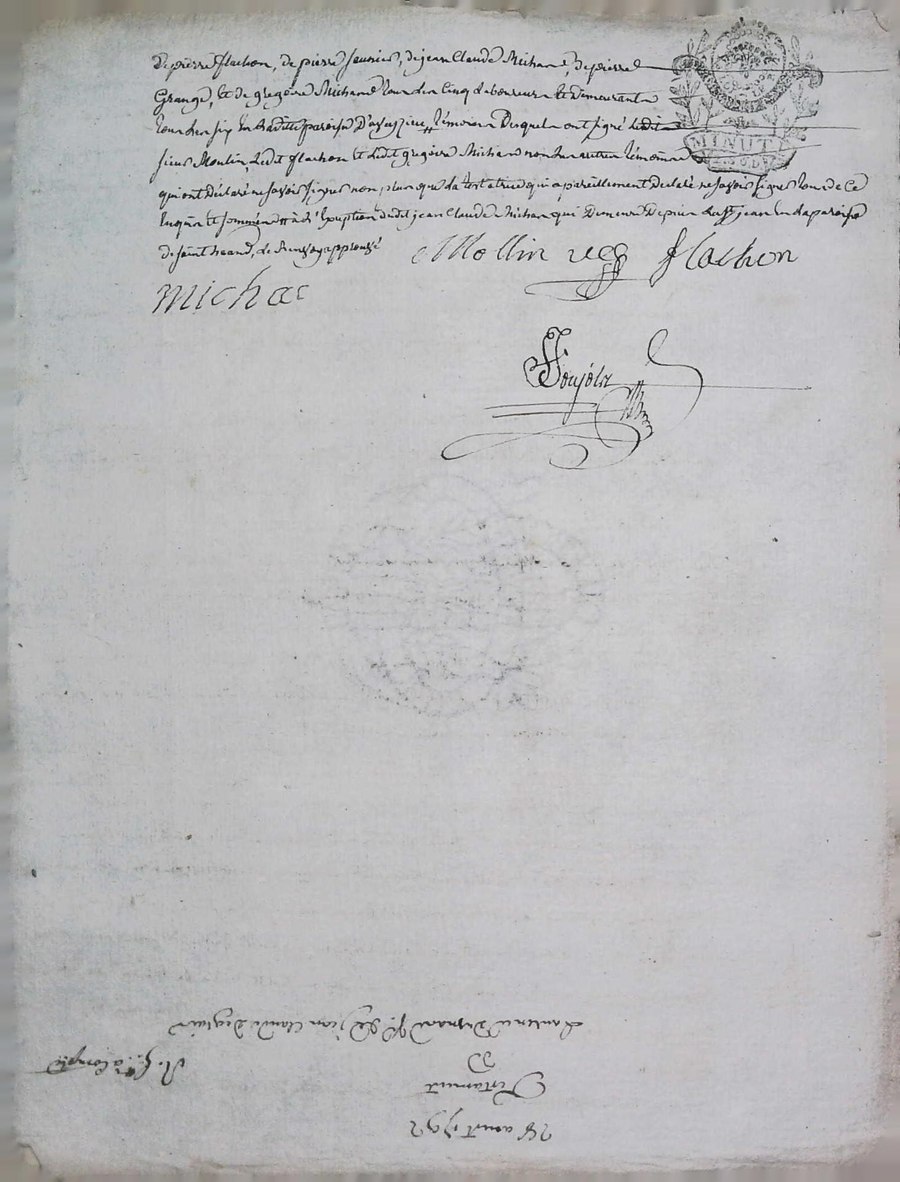 de pierre flachon, de pierre faurier, de jean Claude Michard, de pierre
Grange, et de gregoire Michard tous les cinq laboureurs et demeurants
tous les six en ladite paroisse d'aveyzieu, témoins desquels ont signé ledit
sieur Moulin, ledit flachon et ledit gregoire Michard non les autres témoins
qui ont déclaré ne savoir signer non plus que la testatrice qui a pareillement déclaré ne savoir signer tous de ce
enquis et sommés à l'exception dudit jean Claude Michar qui demeure depuis la St jean en la paroisse
de saint heand, le renvoy approuvé
Mollin flachon
michar
MINUT
28 aout 1792
Testament
De
jean Claude